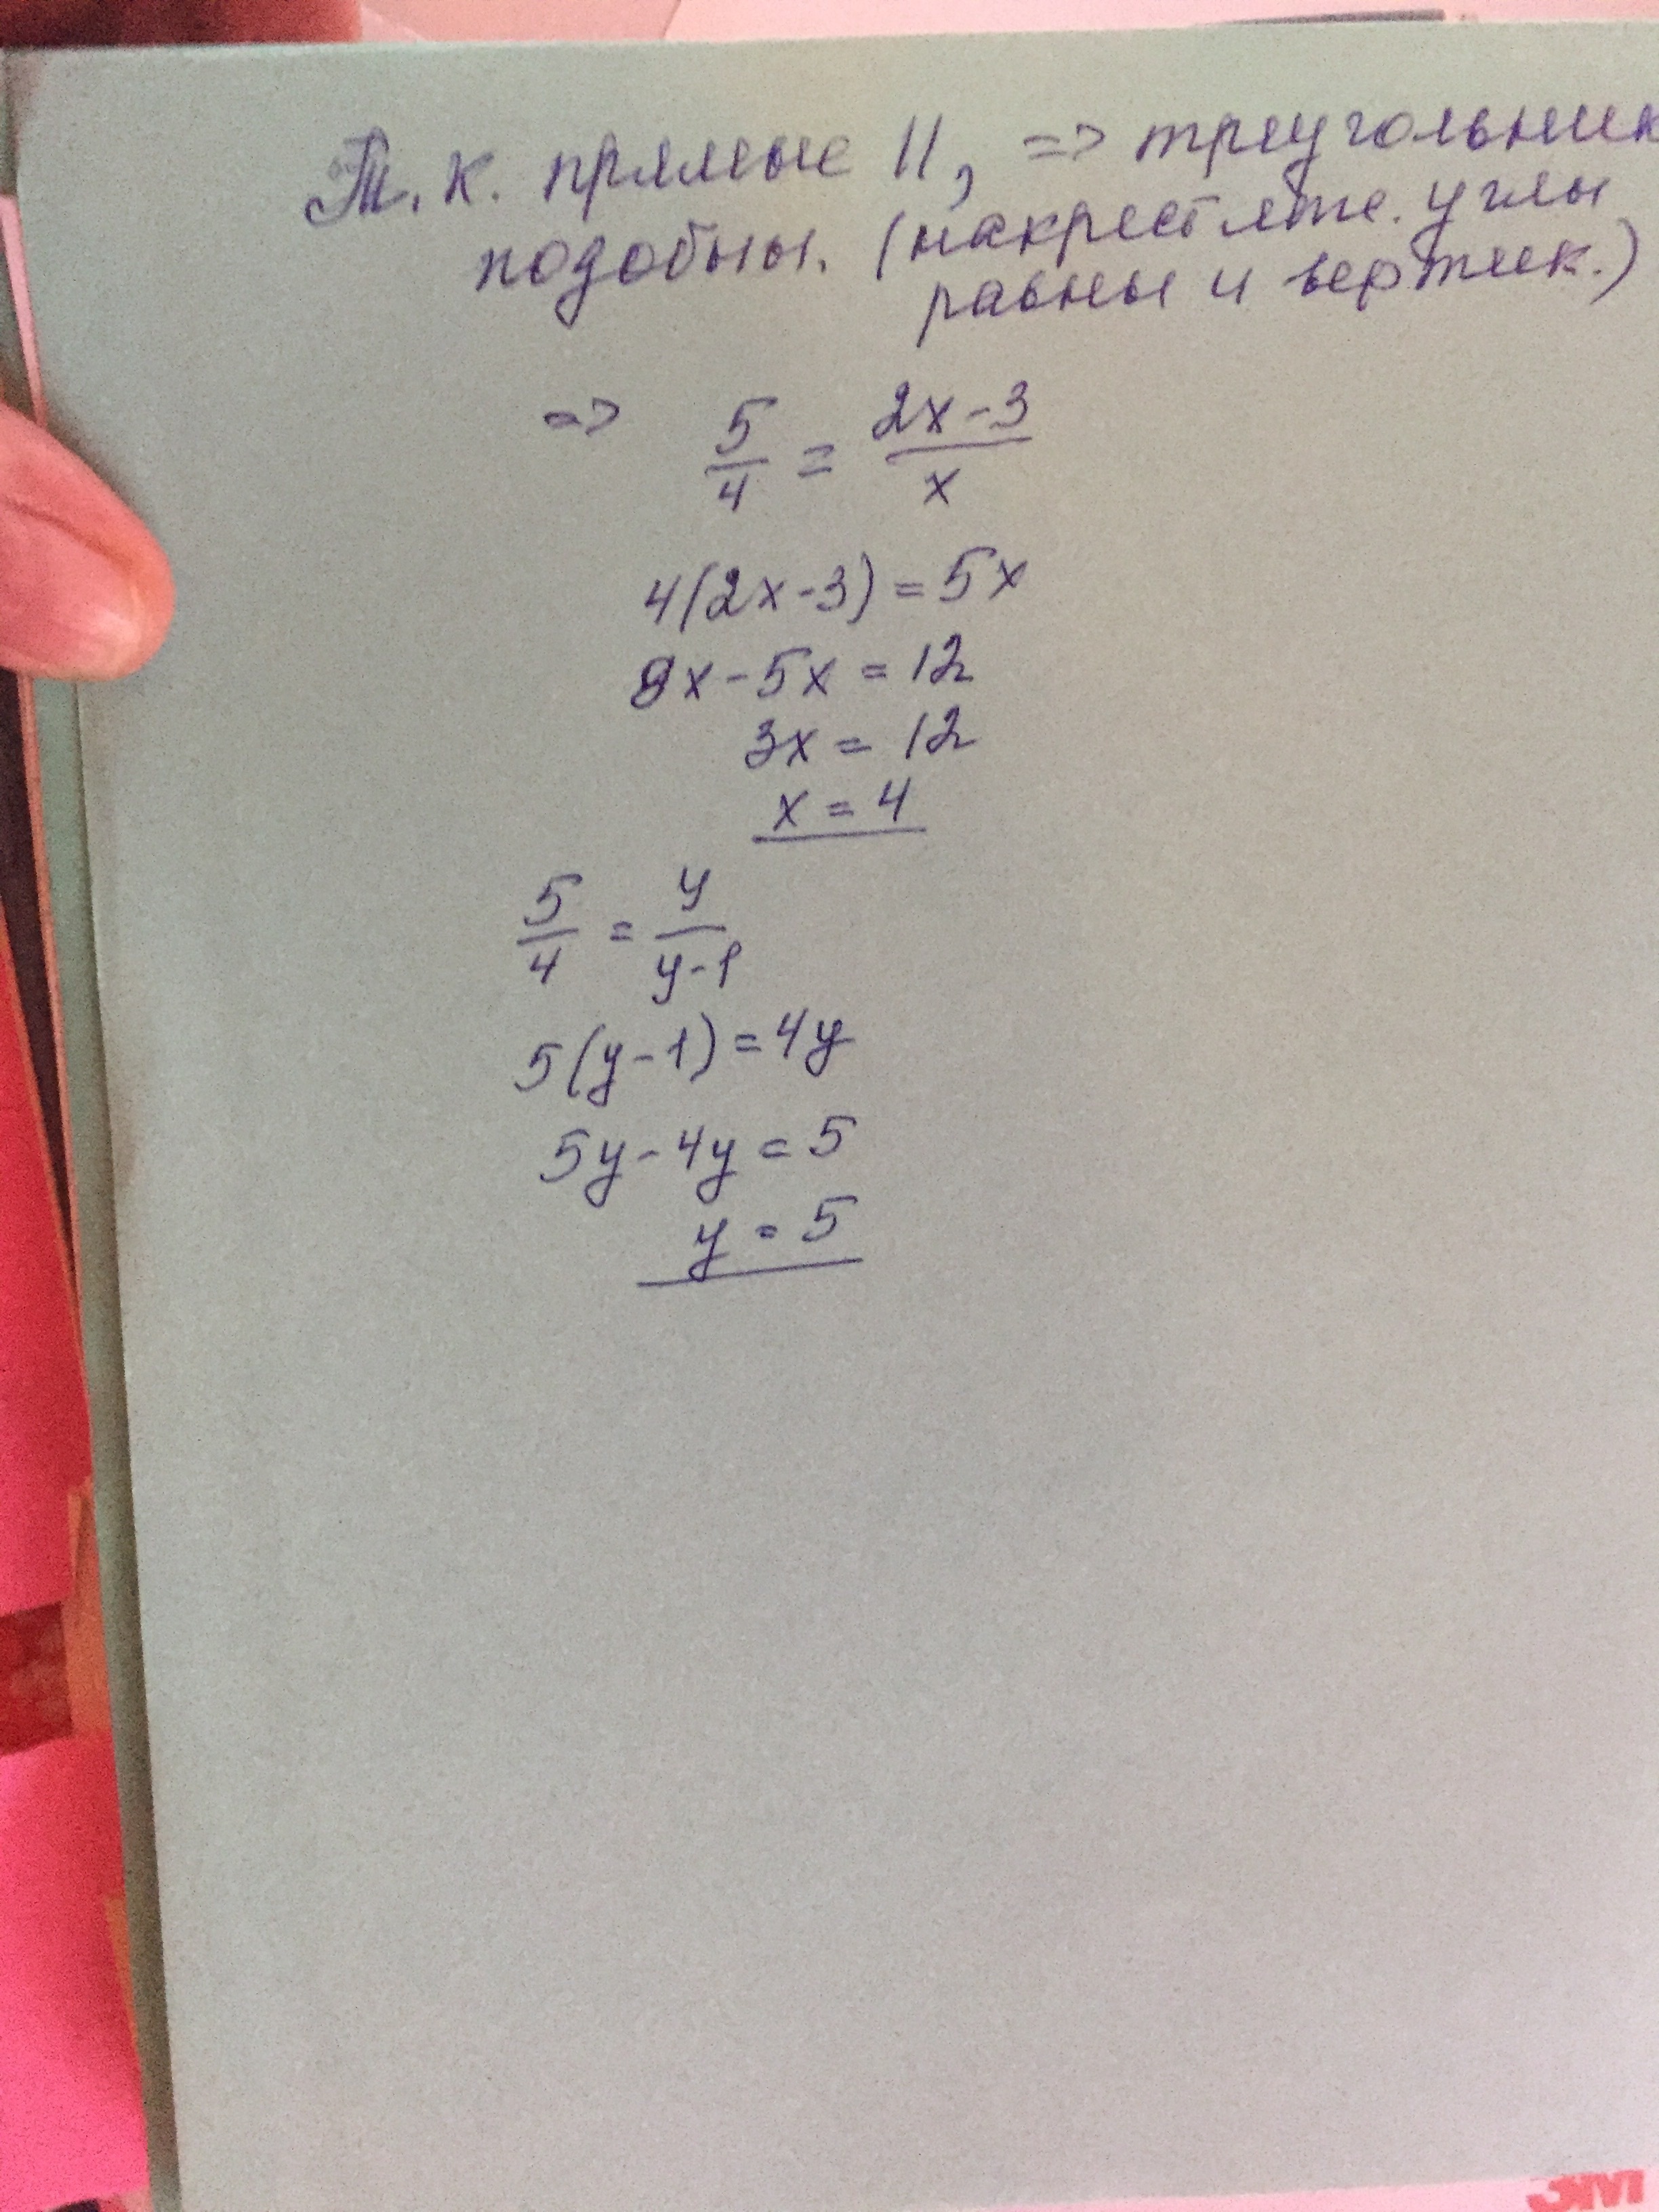 Т.к. прямые ||, => треугольник
подобны. (накрест леж. углы
равны и вертик.)
=> 5/4 = 2x-3/x
4(2x-3)=5x
8x-5x=12
3x=12
x=4
5/4 = y/y-1
5(y-1)=4y
5y-4y=5
y=5
3M